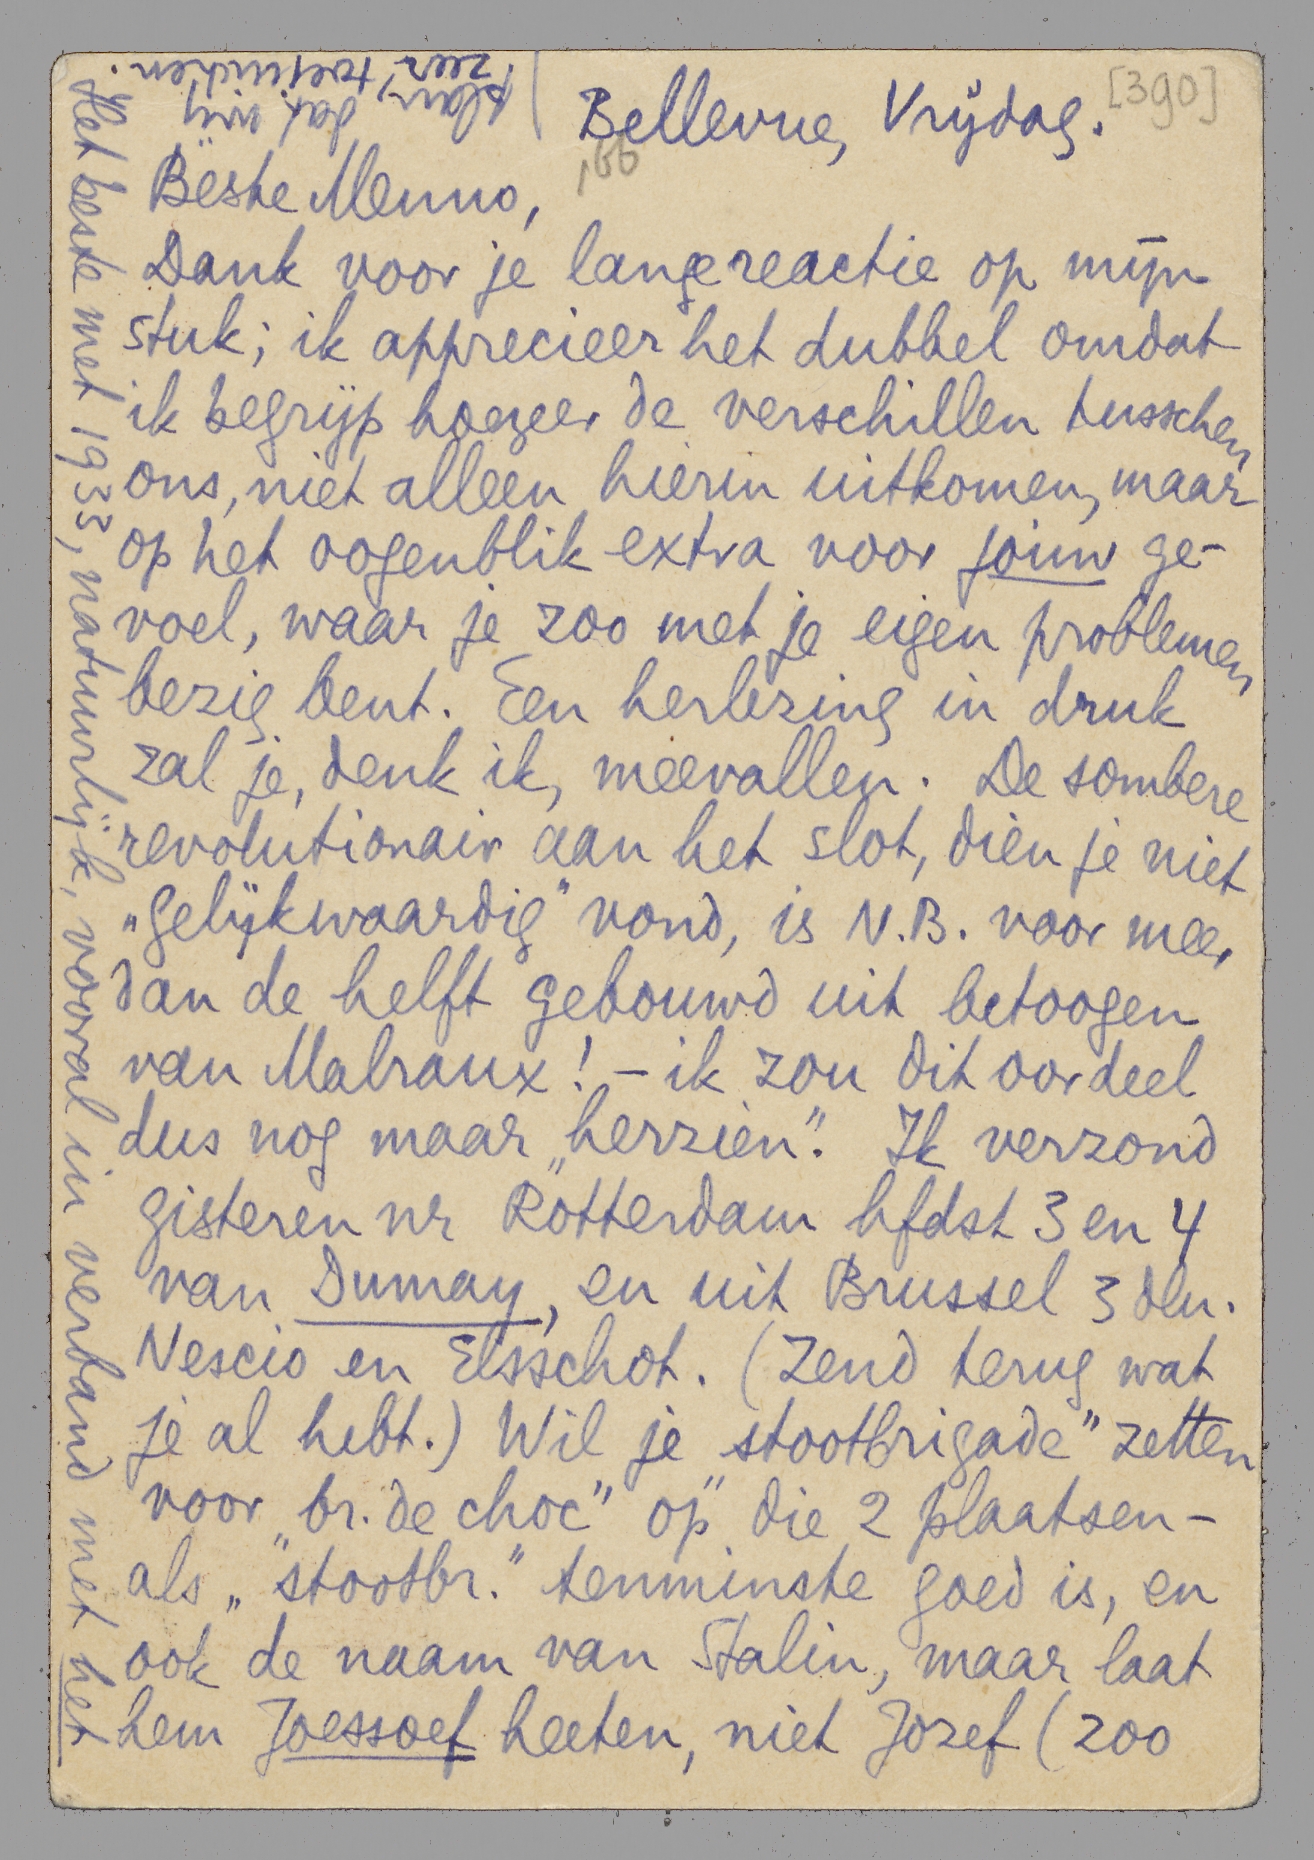 Bellevue, Vrijdag.
[390]
Beste Menno,
Dank voor je lange reactie op mijn
stuk; ik apprecieer het dubbel omdat
ik begrijp hoezeer de verschillen tusschen
ons, niet alleen hierin uitkomen, maar
op het oogenblik extra voor jouw ge-
voel, waar je zoo met je eigen problemen
bezig bent. Een herlezing in druk
zal je, denk ik, meevallen. De sombere
revolutionair aan het slot, dien je niet
„gelijkwaardig” vond, is N.B. voor meer
dan de helft gebouwd uit betoogen
van Malraux! – ik zou dit oordeel
dus nog maar „herzien”. Ik verzond
gisteren nr Rotterdam hfdst 3 en 4
van Dumay, en uit Brussel 3 dln.
Nescio en Elsschot. (Zend terug wat
je al hebt.) Wil je „stootbrigade” zetten
voor „br. de choc” op die 2 plaatsen –
als „stootbr.” tenminste goed is, en
ook de naam van Stalin, maar laat
hem Joessoef heeten, niet Jozef (zoo
Het beste met 1933, natuurlijk, vooral in verband met het
plan, dat wij
zeer toejuichen.